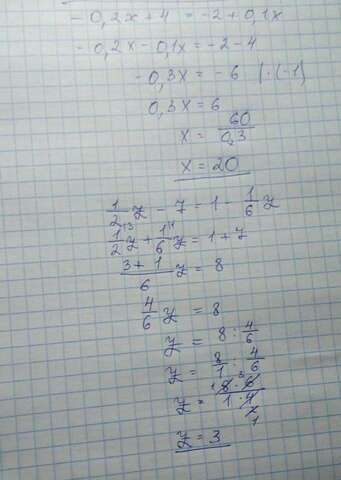 - 0,2x + 4 = -2 + 0,1x
- 0,2x - 0,1x = -2 - 4
- 0,3x = -6 | · (-1)
0,3x = 6
x = 60/0,3
x = 20
1/2 y - 7 = 1 - 1/6 y
1/2 y + 1/6 y = 1 + 7
3 + 1/6 y = 8
4/6 y = 8
y = 8 : 4/6
y = 8/1 : 4/6
y = 8 · 6/1 · 4
y = 3